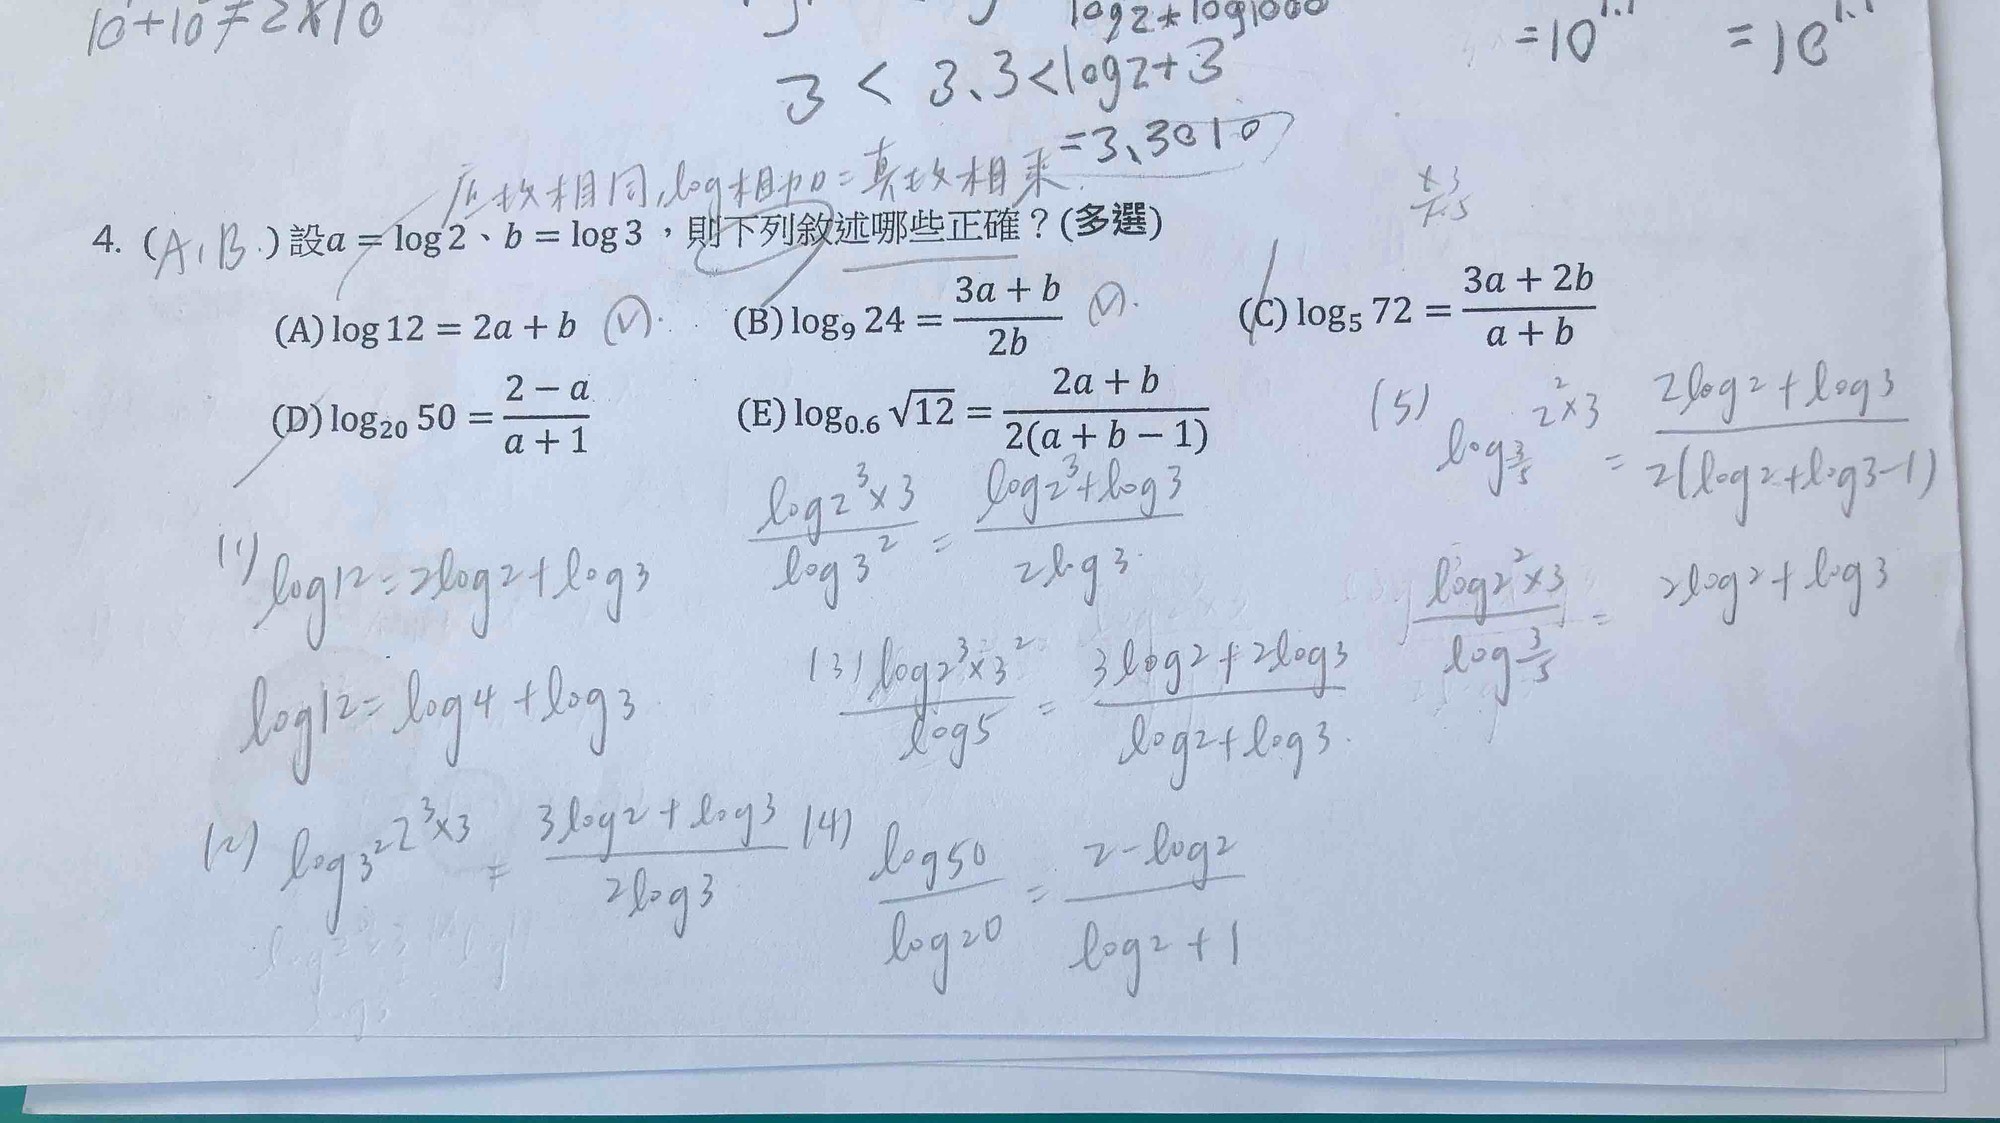 10 + 10 ≠ 2×10
log2+log1000
=10^1.1 =10^1.1
3 < 3.3 < log2+3
=3.3010
底故相同,log相加=真故相乘
+3
+5
4. (A,B.) 設a = log 2、b = log 3，則下列敘述哪些正確？(多選)
(A) log 12 = 2a + b (V). (B) log₉ 24 = (3a + b)/(2b) (V). (C) log₅ 72 = (3a + 2b)/(a + b)
(D) log₂₀ 50 = (2 − a)/(a + 1) (E) log₀.₆ √12 = (2a + b)/(2(a + b − 1))
(5) log_(3/5) 2²×3 = (2log2+log3)/(2(log2+log3-1))
(log2²×3)/(log3/5) = 2log2+log3
(1) log12=2log2+log3
log12=log4+log3
(log2³×3)/(log3²) = (log2³+log3)/(2log3)
(2) log_3² 2³×3 = (3log2+log3)/(2log3)
(3) (log2³×3²)/(log5) = (3log2+2log3)/(log2+log3)
(4) (log50)/(log20) = (2-log2)/(log2+1)